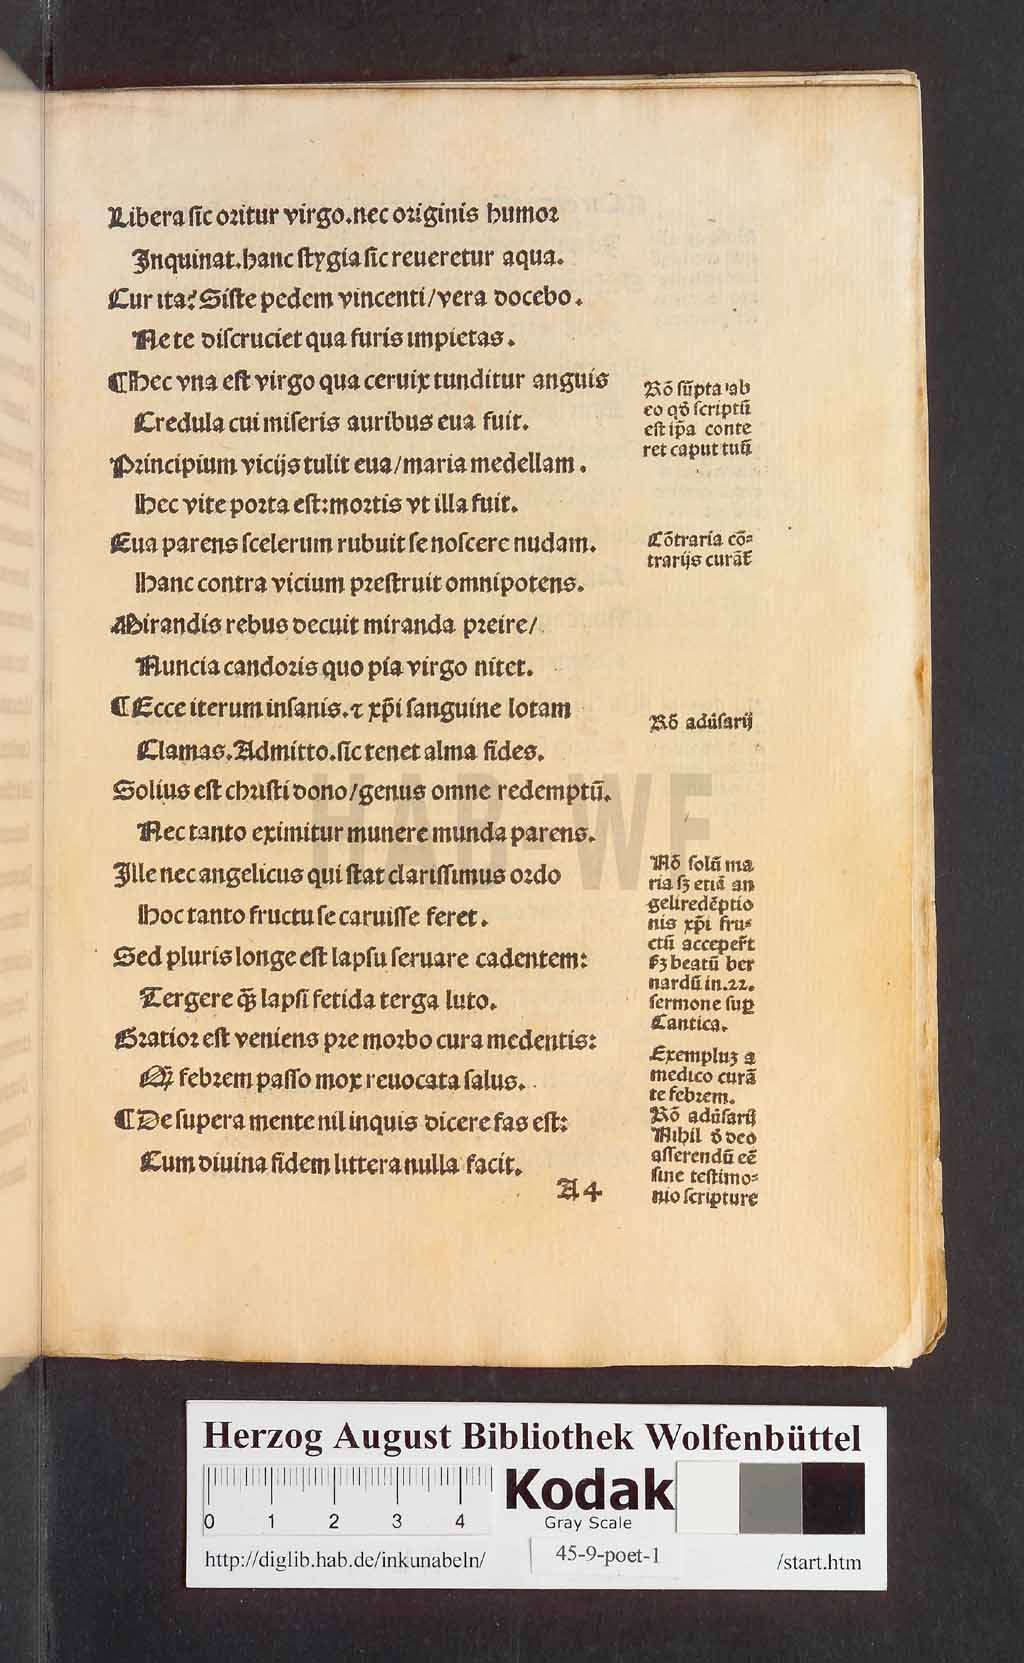 Libera sic oritur virgo. nec originis humor
Inquinat. hanc stygia sic reueretur aqua.
Cur ita? Siste pedem vincenti/ vera docebo.
Ne te discruciet qua furis impietas.
¶ Hec vna est virgo qua ceruix tunditur anguis
Credula cui miseris auribus eua fuit.
Principium vicijs tulit eua/ maria medellam.
Hec vite porta est: mortis vt illa fuit.
Eua parens scelerum rubuit se noscere nudam.
Hanc contra vicium prestruit omnipotens.
Mirandis rebus decuit miranda preire/
Nuncia candoris quo pia virgo nitet.
¶ Ecce iterum insanis. ⁊ xp̄i sanguine lotam
Clamas. Admitto. sic tenet alma fides.
Solius est christi dono/ genus omne redemptū.
Nec tanto eximitur munere munda parens.
Ille nec angelicus qui stat clarissimus ordo
Hoc tanto fructu se caruisse feret.
Sed pluris longe est lapsu seruare cadentem:
Tergere q̄ꝫ lapsi fetida terga luto.
Gratior est veniens pre morbo cura medentis:
Q̄ꝫ febrem passo mox reuocata salus.
¶ De supera mente nil inquis dicere fas est:
Cum diuina fidem littera nulla facit.
A 4
Rō sūpta ab
eo qđ scriptū
est ip̄a conte
ret caput tuū
Cōtraria cō=
trarijs curāt̄
Rō adūsarij
Nō solū ma
ria sꝫ etiā an
geli redēptio
nis xp̄i fru=
ctū acceper̄t
sꝫ beatū ber
nardū in .22.
sermone suꝑ
Cantica.
Exempluꝫ a
medico curā
te febrem.
Rō adūsarij
Nihil đ deo
asserendū eē
sine testimo=
nio scripture
HAB-WF
Herzog August Bibliothek Wolfenbüttel
0 1 2 3 4
Kodak
Gray Scale
http://diglib.hab.de/inkunabeln/
45-9-poet-1
/start.htm